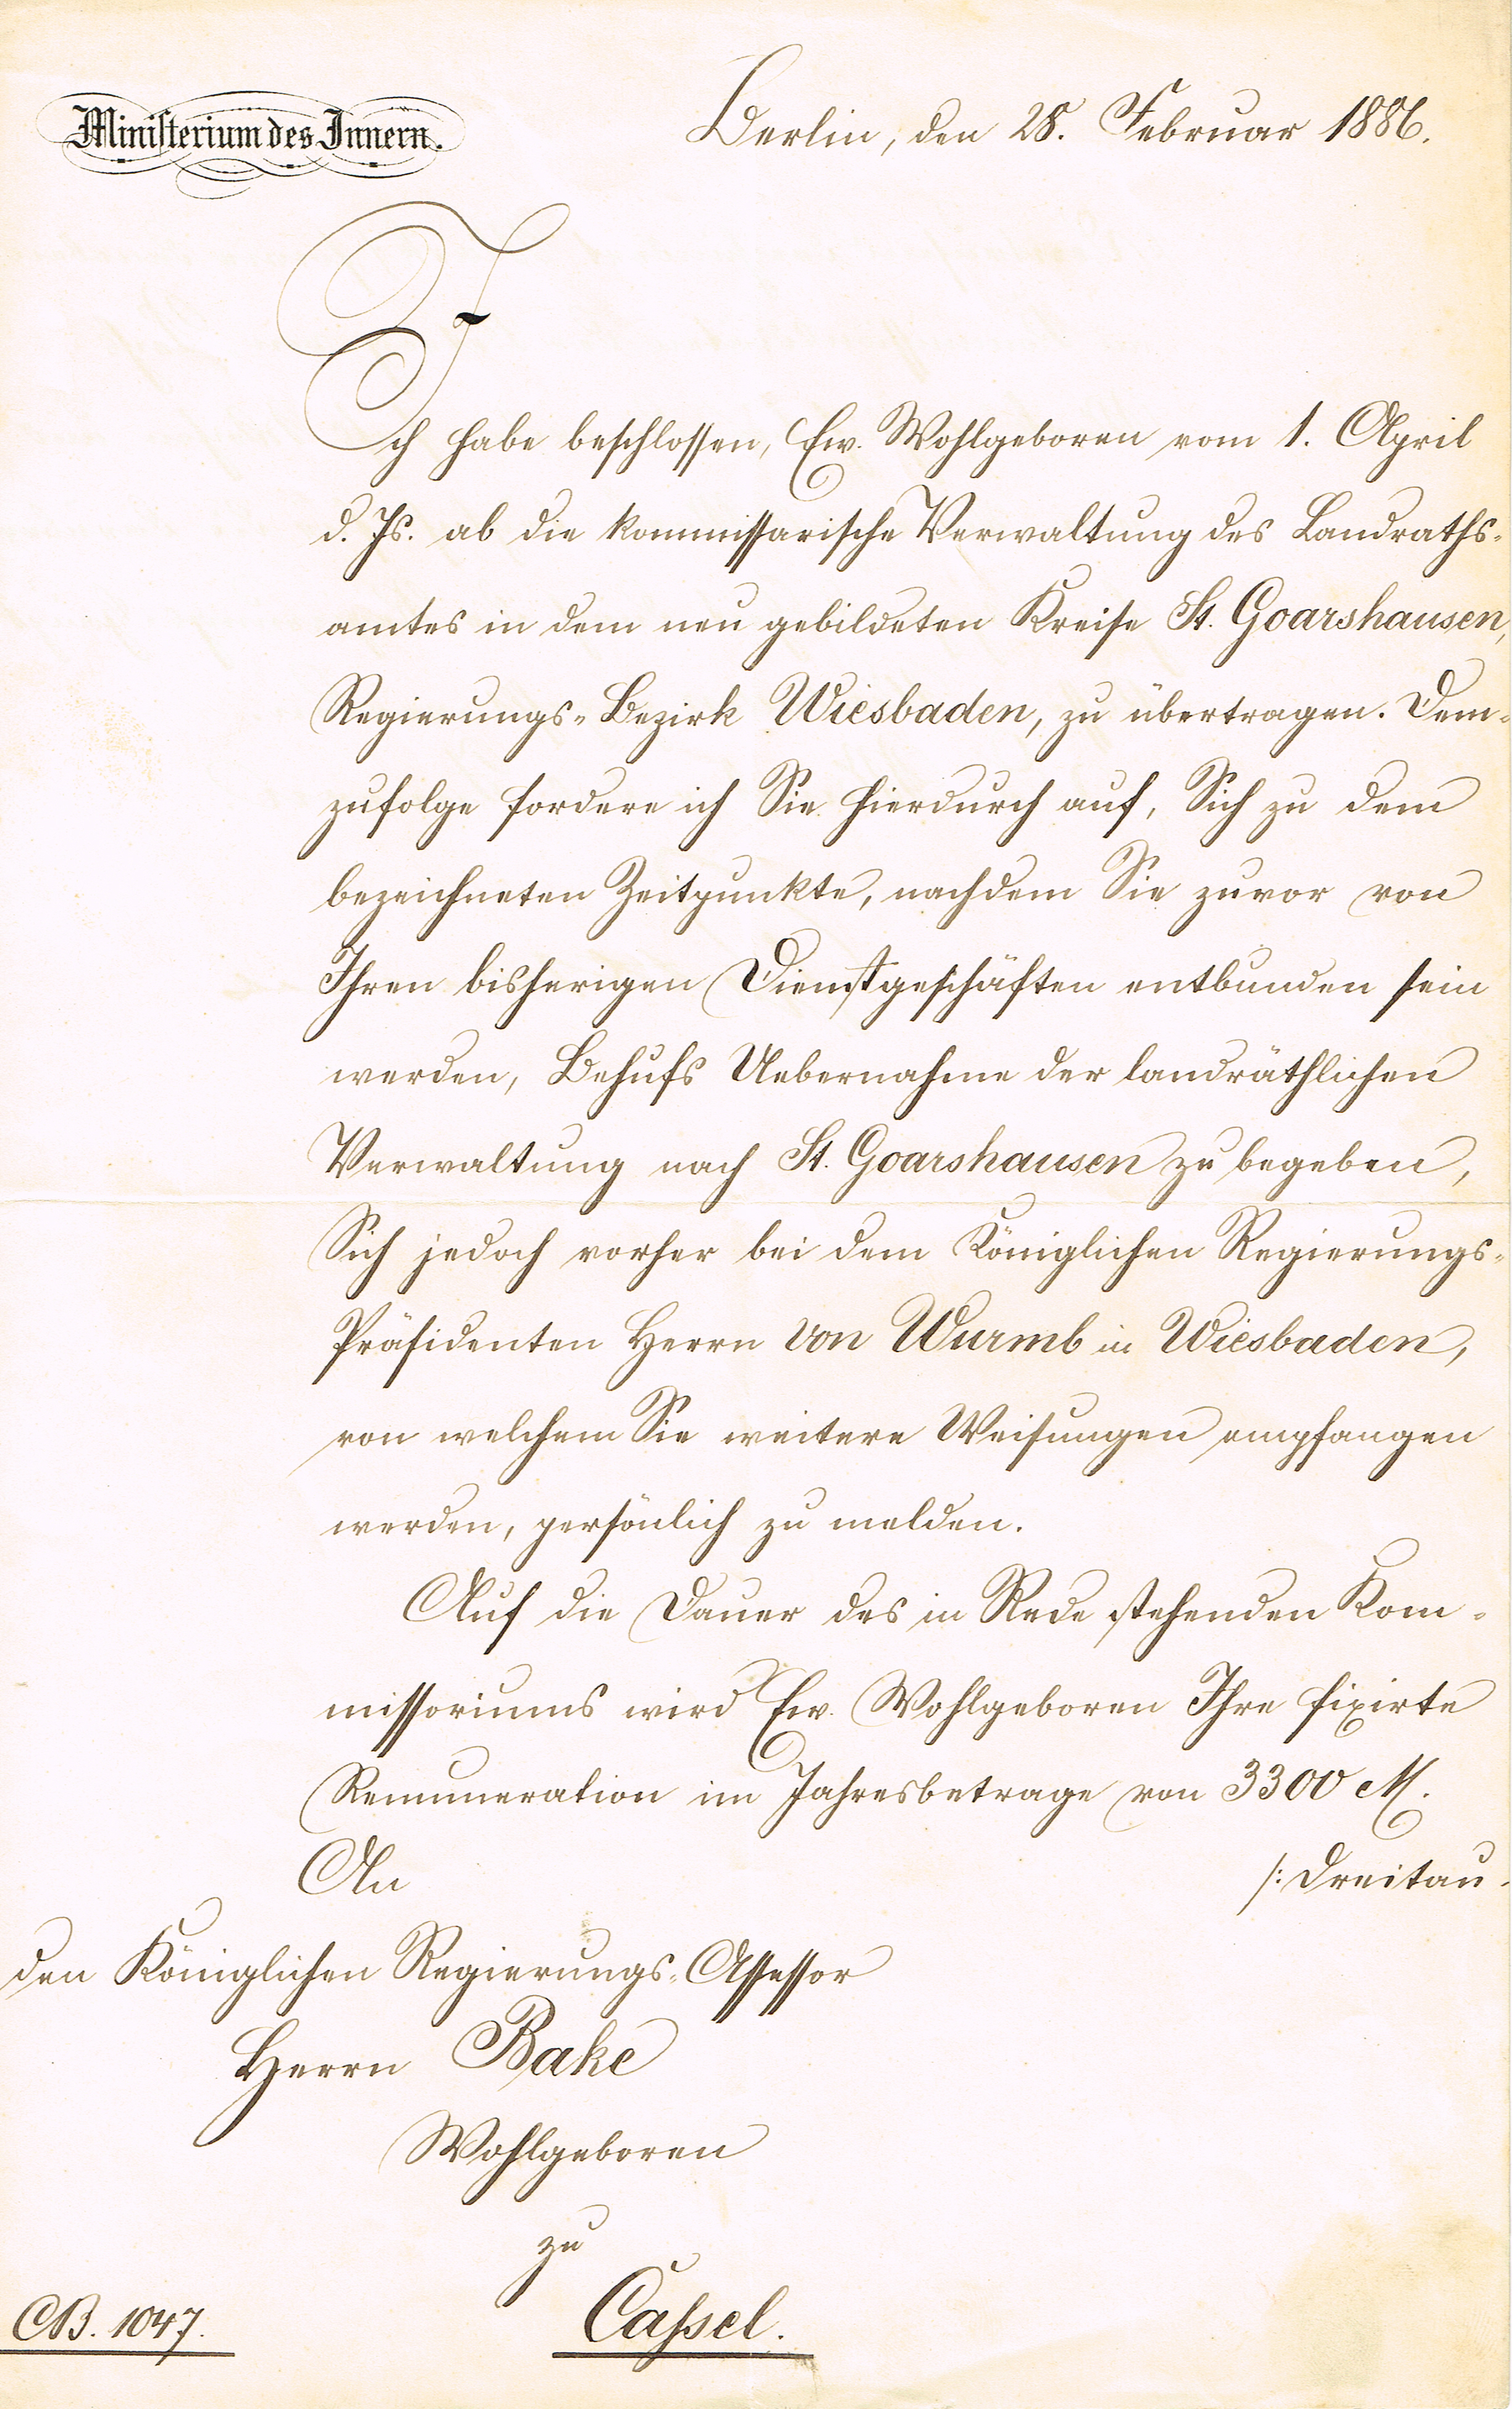 Ministerium des Innern.
Berlin, den 28. Februar 1886.
Ich habe beschlossen, Ew. Wohlgeboren vom 1. April
d. Js. ab die kommissarische Verwaltung des Landraths-
amtes in dem neu gebildeten Kreise St. Goarshausen,
Regierungs-Bezirk Wiesbaden, zu übertragen. Dem-
zufolge fordere ich Sie hierdurch auf, Sich zu dem
bezeichneten Zeitpunkte, nachdem Sie zuvor von
Ihren bisherigen Dienstgeschäften entbunden sein
werden, Behufs Uebernahme der landräthlichen
Verwaltung nach St. Goarshausen zu begeben,
Sich jedoch vorher bei dem Königlichen Regierungs-
Präsidenten Herrn von Wurmb in Wiesbaden,
von welchem Sie weitere Weisungen empfangen
werden, persönlich zu melden.
Auf die Dauer des in Rede stehenden Kom-
missoriums wird Ew. Wohlgeboren Ihre fixirte
Remuneration im Jahresbetrage von 3300 M.
/: Dreitau-
An
den Königlichen Regierungs-Assessor
Herrn Bake
Wohlgeboren
zu
Cassel.
CB. 1047.